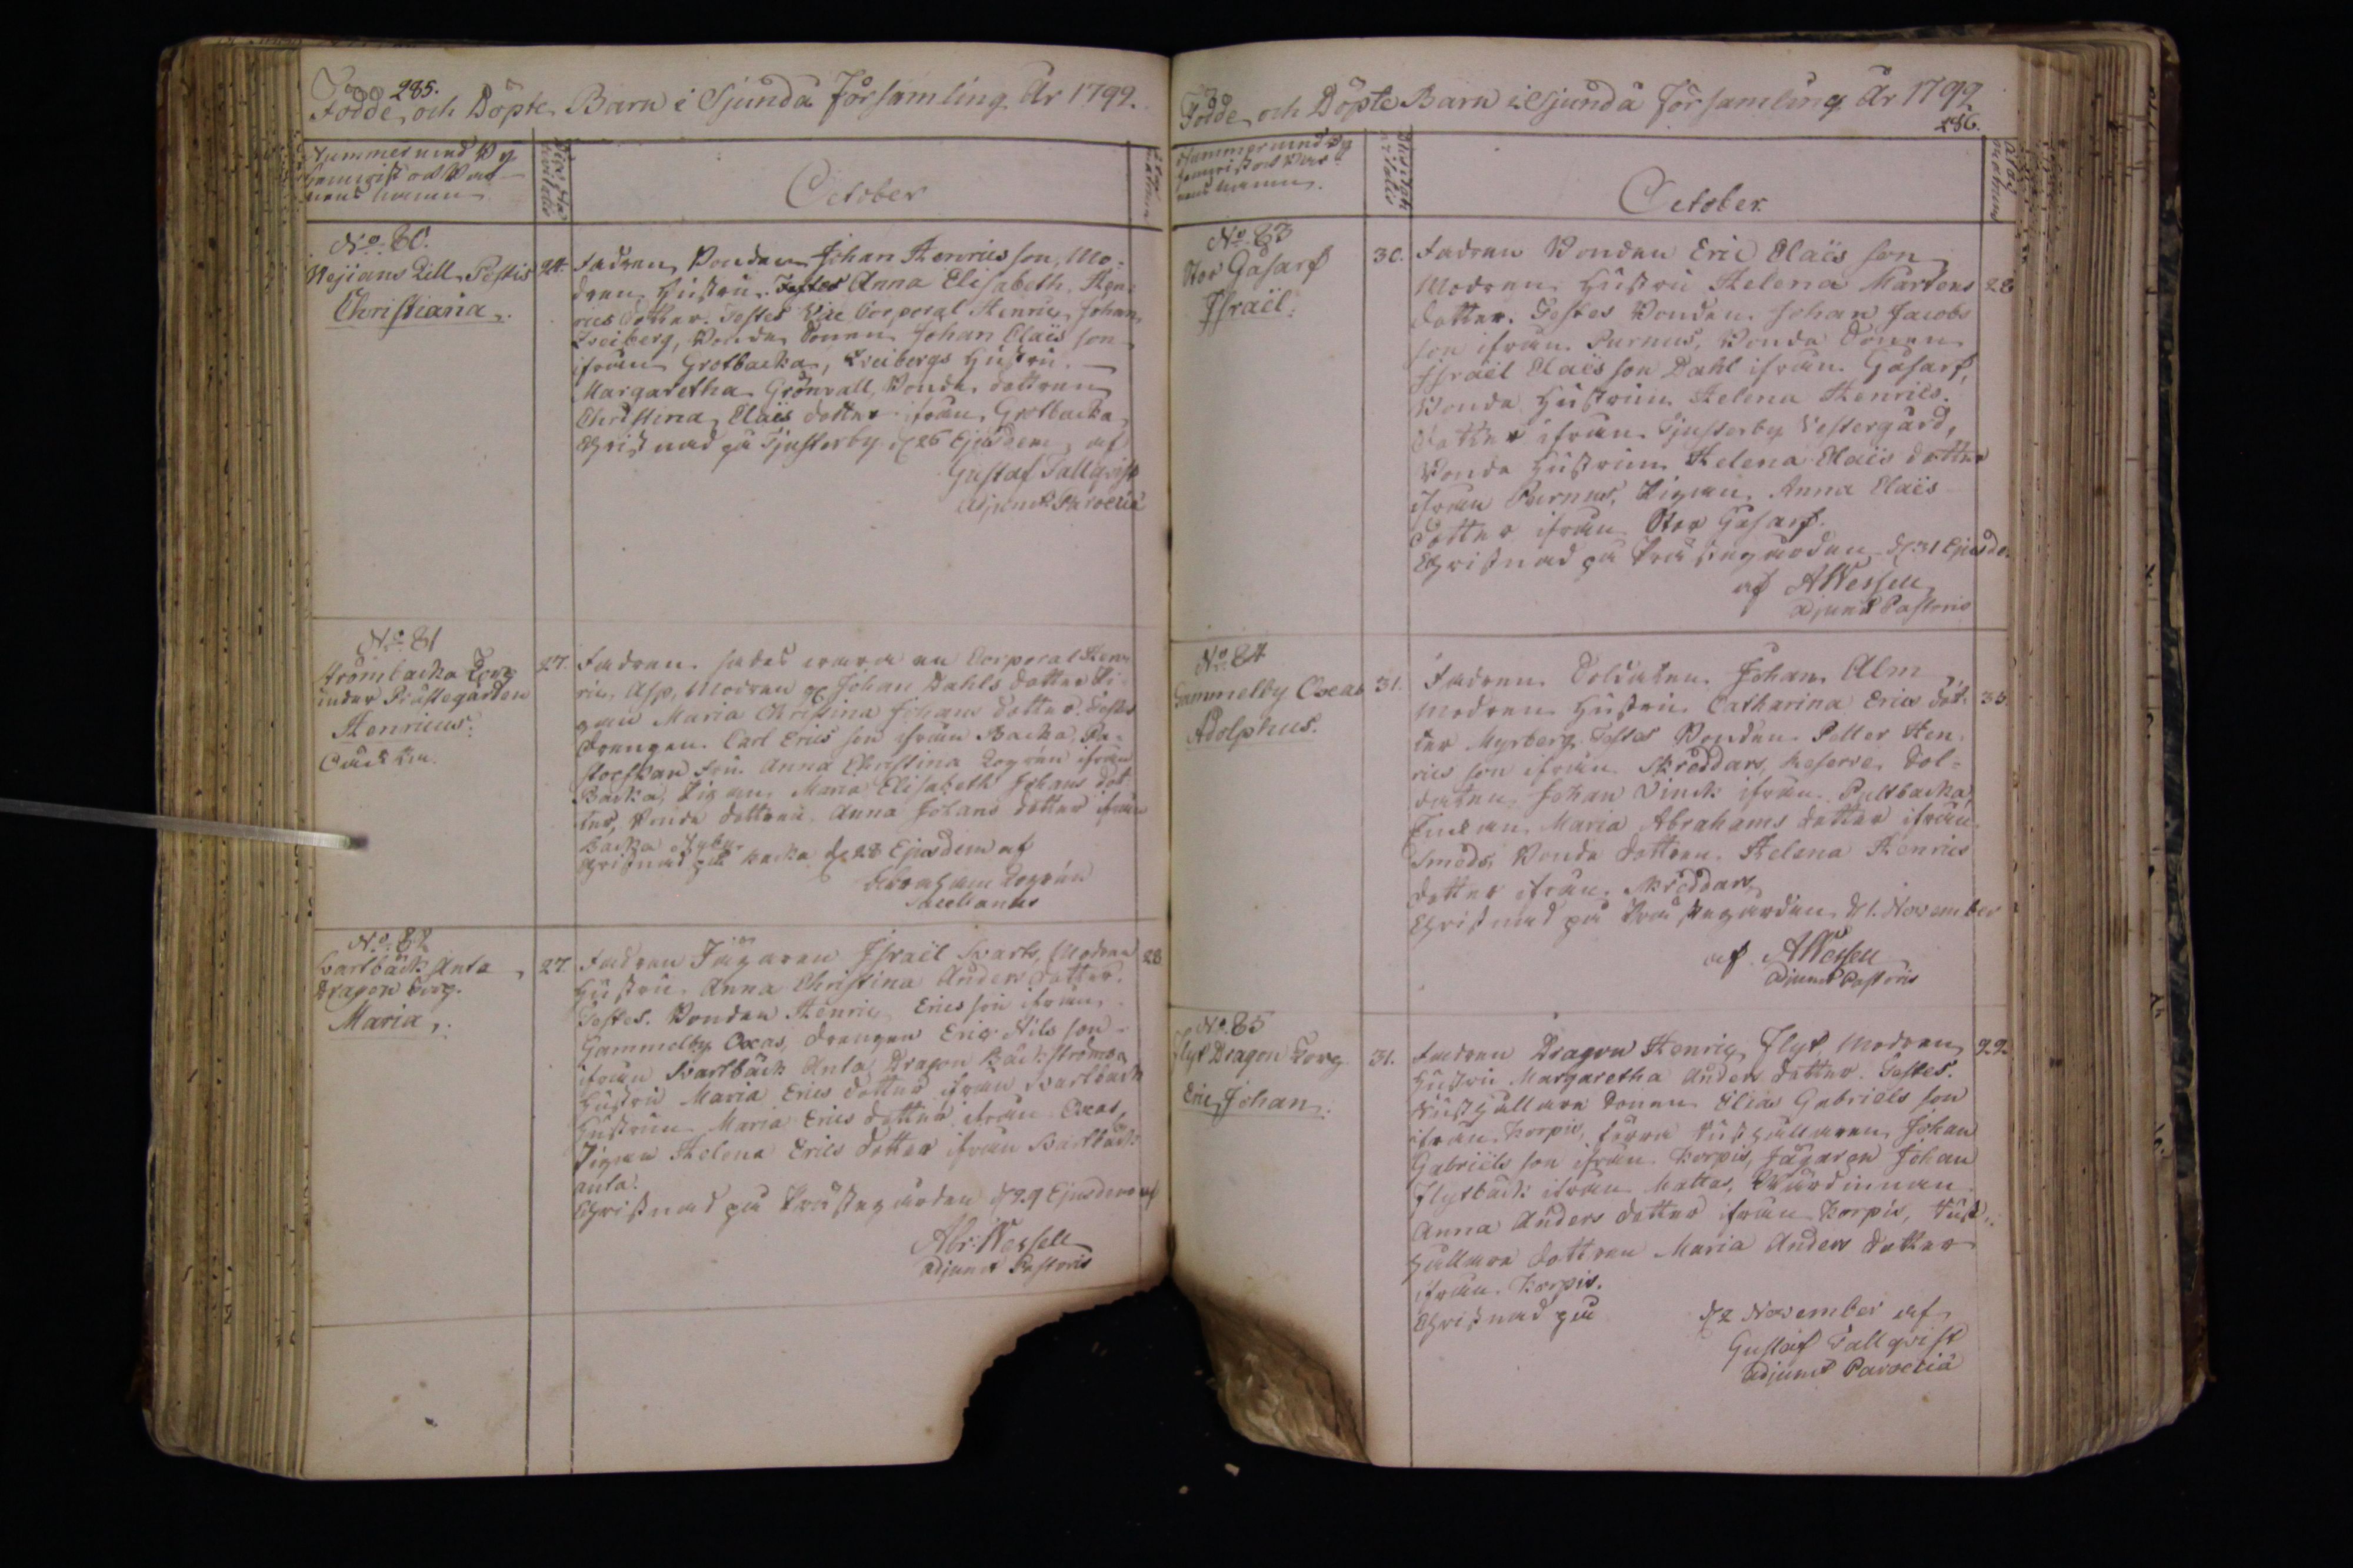 285.
Födde och Döpte Barn i Sjundå Församling År 1799.
Nummer med By
Hemvist och Bar-
nens namn
October
No. 80.
Wejians Lill Pöstis
Christiana.
24.
Fadren Bonden Johan Henricsson, Mo-
dren Hustru Anna Elisabeth Hen-
rics dotter. Testes Vice Corporal Henric Johan
Freiberg, Bonde Sonen Johan Claës son
ifrån Grotbacka, Freibergs Hustru
Margaretha Grönvall, Bonde dottren
Christina Claës dotter ifrån Grotbacka
Christnad på Tjusterby d. 26 Ejusdem af
Gustaf Tallqvist
Adjunct. Paroecia
No. 81
Strömbacka Torp
under Prästegården
Henricus.
27.
Fadren sades vara en Corporal Hen-
ric Asp, Modren Johan Dahls dotter Pi-
gan Maria Christina Johans dotter. Testes
Drengen Carl Erics son ifrån Backa, Pa-
storskan Fru Anna Christina Logrén ifrån
Backa, Pigan Maria Elisabeth Johans dot-
ter, Bonde dottren Anna Johans dotter ifrån
Backa
Christnad på Backa d. 28 Ejusdem af
Abraham Logrén
Sacellanus
No. 82
Svartbäck Anta
Dragon Torp.
Maria.
27
Fadren Jägaren Israël Svart, Modren
28
Hustru Anna Christina Anders dotter.
Testes. Bonden Henric Ericsson ifrån
Gammelby Oxas, Drengen Eric Nils son
ifrån Svartbäck Anta, Dragon Bäckströms
Hustru Maria Erics dotter ifrån Svartbäck
Hustrun Maria Erics dotter ifrån Oxas,
Pigan Helena Erics dotter ifrån Svartbäck
anta.
Christnad på Prästegården d. 29 Ejusdem af
Abr: Wessell
Adjunct Pastoris
Födde och Döpte Barn i Sjundå Församling År 1799
286.
Nummer med By
Hemvist och Bar-
nens namn.
October.
No. 83
Stor Gåsarf
Israël.
30.
Fadren Bonden Eric Claës son
Modren Hustru Helena Mårtens
28
dotter. Testes Bonden Johan Jacobs
son ifrån Purnus, Bonde Sonen
Israël Claës son Dahl ifrån Gåsarf,
Bonde Hustrun Helena Henrics
dotter ifrån Tjusterby Vestergård,
Bonde Hustrun Helena Claës dotter
ifrån Purnus, Pigan Anna Claës
dotter ifrån Stor Gåsarf.
Christnad på Prästegården d. 31 Ejusde.
af AWessell
Adjunct Pastoris
No. 84
Gammelby Oxas
Adolphus.
31.
Fadren Soldaten Johan Alm
Modren Hustru Catharina Erics dot-
35.
ter Myrberg. Testes Bonden Petter Hen-
rics son ifrån Skräddars, Reserve Sol-
daten Johan Vinck ifrån Pultbacka
Maria Abrahams dotter ifrån
Smeds, Bonde dottren Helena Henrics
dotter ifrån Skräddars
Christnad på Prästegården d. 1. November
af AWessell
Adjunct Pastoris
No. 85
Flyt Dragon Torp
Eric Johan.
31.
Fadren Dragon Henric Flyt, Modren
29
Hustru Margaretha Anders dotter. Testes.
Rusthållare Sonen Elias Gabriels son
ifrån Korpis, förra Rusthållaren Johan
Gabriëls son ifrån Korpis, Jägaren Johan
Flytbäck ifrån Mattas, Wärdinnan
Anna Anders dotter ifrån Korpis, Rust-
hållare dottren Maria Anders dotter
ifrån Korpis.
Christnad på d. 2 November af
Gustaf Tallqvist
Adjunct Paroecia